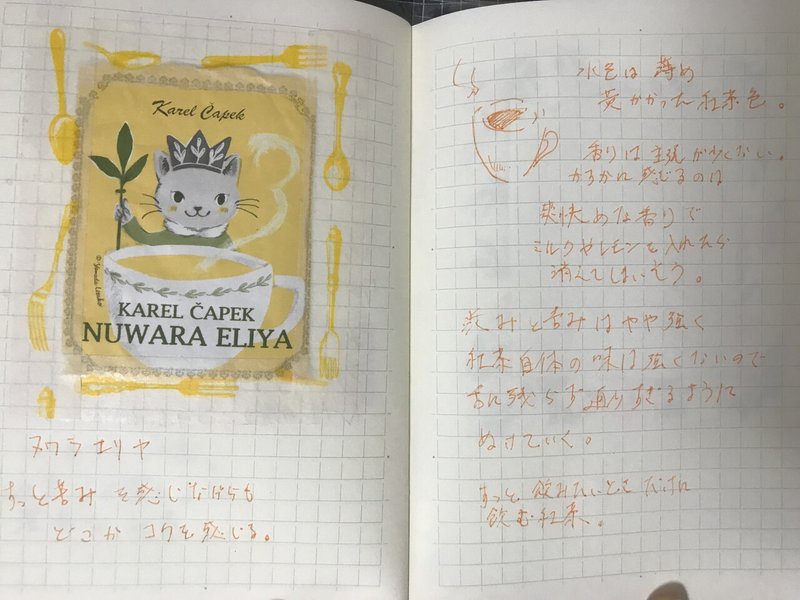 Karel Čapek
KAREL ČAPEK
NUWARA ELIYA
ヌワラエリヤ
すっと苦みを感じながらも
どこかコクを感じる。
水色は薄め
黄がかった紅茶色。
香りは主張が少くない。
かろかに感じるのは
爽快めな香りで
ミルクやレモンを入れたら
消えてしまいそう。
渋みと苦みはやや強く
紅茶自体の味は強くないので
舌に残らず通りすぎるように
ぬけていく。
すっと飲みたいときだけに
飲む紅茶。